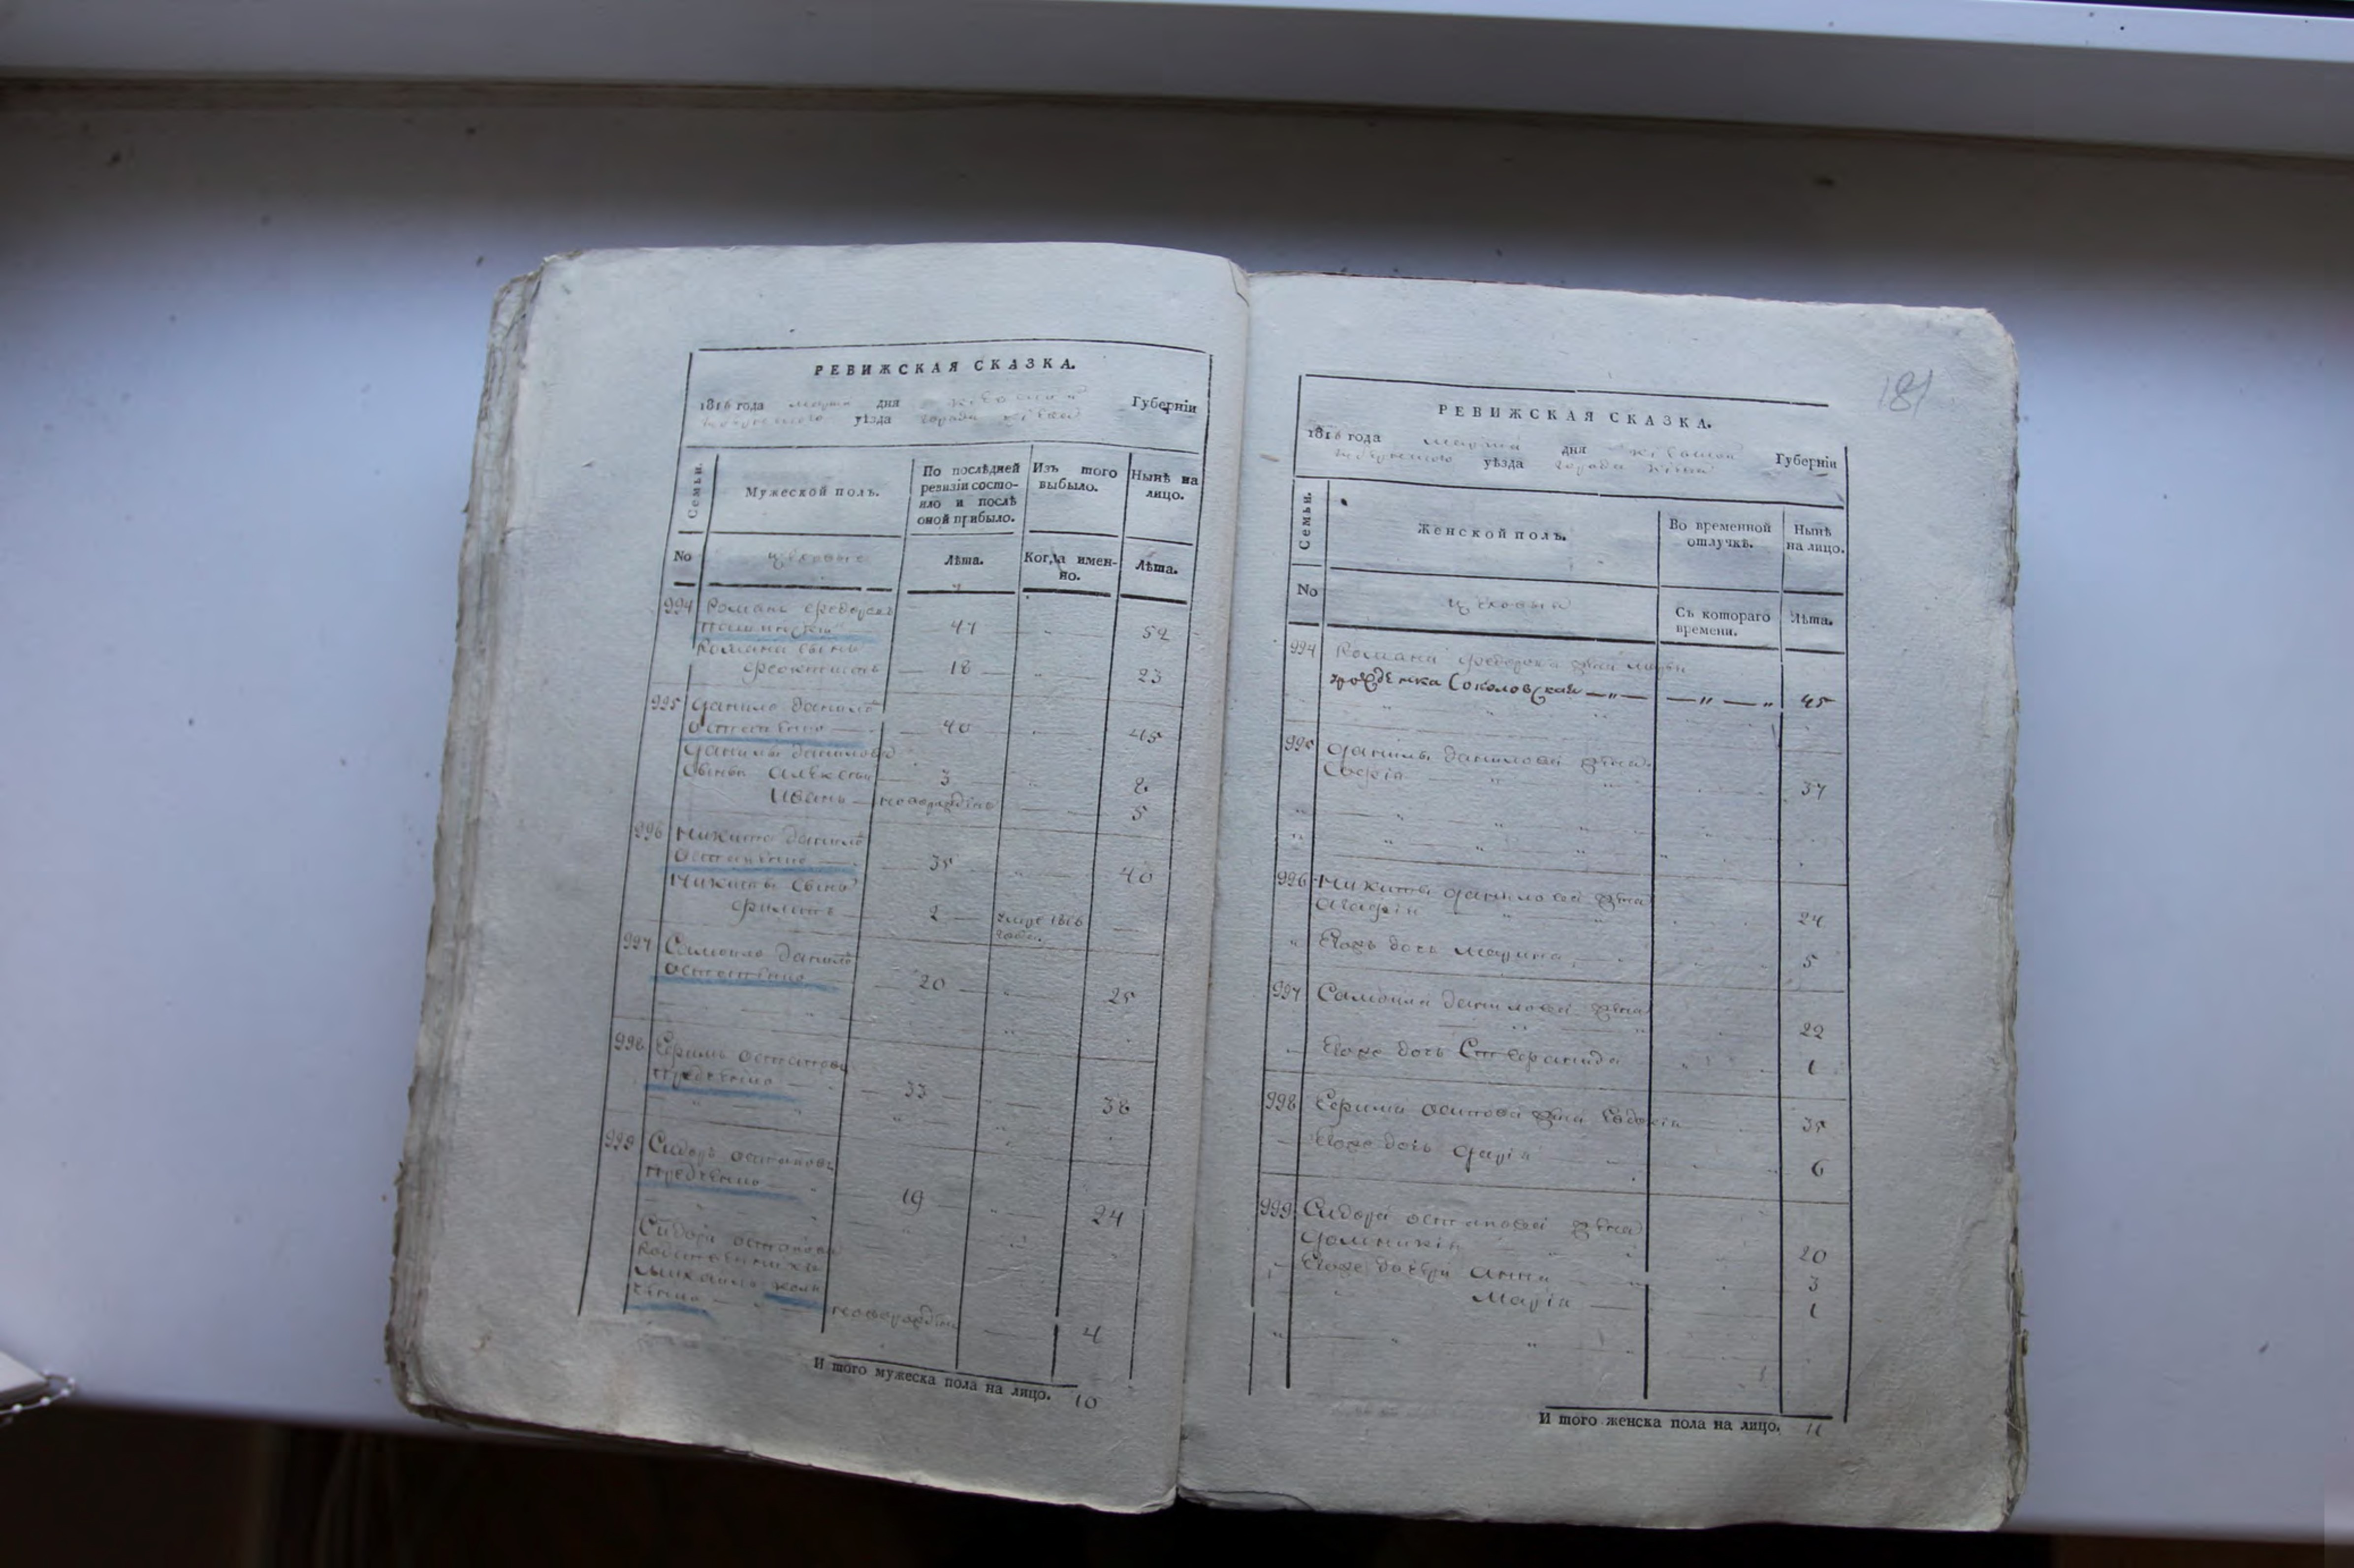 РЕВИЖСКАЯ СКАЗКА.
1816 года марта дня Кіевской Губерніи
уѣзда города Кіева
Семьи.
Мужеской полъ.
По послѣдней ревизіи состояло и послѣ оной прибыло.
Изъ того выбыло.
Нынѣ на лицо.
No
цеховые
Лѣта.
Когда именно.
Лѣта.
994 Романъ Федоровъ
47 52
Романа сынъ
Феоктистъ 18 23
995 Данило Данилов
40 45
Данилы Данилова
сыновья Алексей 3 8
Иванъ новорожденъ 5
996 Никита Данилов
35 40
Никиты сынъ
Филипъ 2 умре 1816
года.
997 Самоило Данилов
20 25
998 Ефимъ Остаповъ
33 38
999 Сидоръ Остаповъ
19 24
Сидора Остапова
Михайло
новорожденъ 4
И того мужеска пола на лицо. 10
181
РЕВИЖСКАЯ СКАЗКА.
1816 года марта дня Кіевской Губерніи
уѣзда города Кіева
Семьи.
Женской полъ.
Во временной отлучкѣ.
Нынѣ на лицо.
No
цеховыя
Съ котораго времени.
Лѣта.
994 Романа Федорова жена
Соколовская 45
995 Данилы Данилова жена
Софія 37
996 Никиты Данилова жена
Агафія 24
Егоже дочь Марина 5
997 Самоила Данилова жена
22
Егоже дочь 1
998 Ефима Остапова жена Евдокія 35
Егоже дочь Дарія 6
999 Сидора Остапова жена
Домникія 20
Егоже дочери Анна 3
Марія 1
И того женска пола на лицо. 11